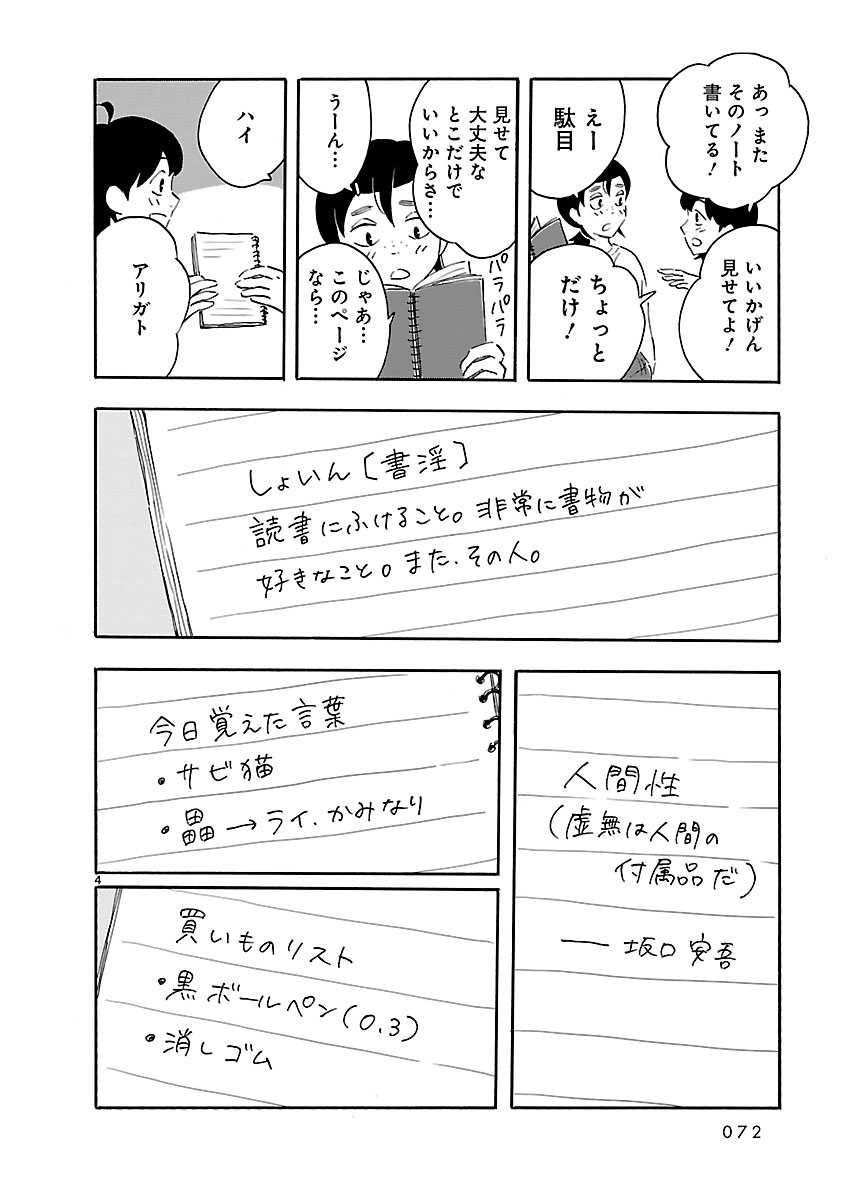 あっ また
そのノート
書いてる！
いいかげん
見せてよ！
えー
駄目
ちょっと
だけ！
見せて
大丈夫な
とこだけで
いいからさ…
パラパラ
うーん…
じゃあ…
このページ
なら…
ハイ
アリガト
しょいん［書淫］
読書にふけること。非常に書物が
好きなこと。また、その人。
人間性
（虚無は人間の
付属品だ）
── 坂口安吾
今日覚えた言葉
・サビ猫
・畾→ライ、かみなり
4
買いものリスト
・黒ボールペン（0.3）
・消しゴム
072